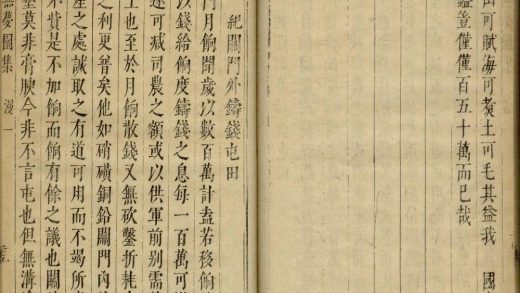 可賦海可煑土可毛其益我 國
豈僅僅百五十萬而已哉
紀關門外鑄錢屯田
門月餉聞歲以數百萬計盍若移餉
以錢給餉度鑄錢之息每一百萬可
可減司農之額或以供軍前別需
上也至於月餉散錢又無砍鑿折耗
之利更普矣他如硝磺銅鉛關門內
產之處誠取之有道可用而不竭所
不貲是不加餉而餉有餘之議也關
莫非膏腴今非不言屯也但無溝
無夢園集 漫一